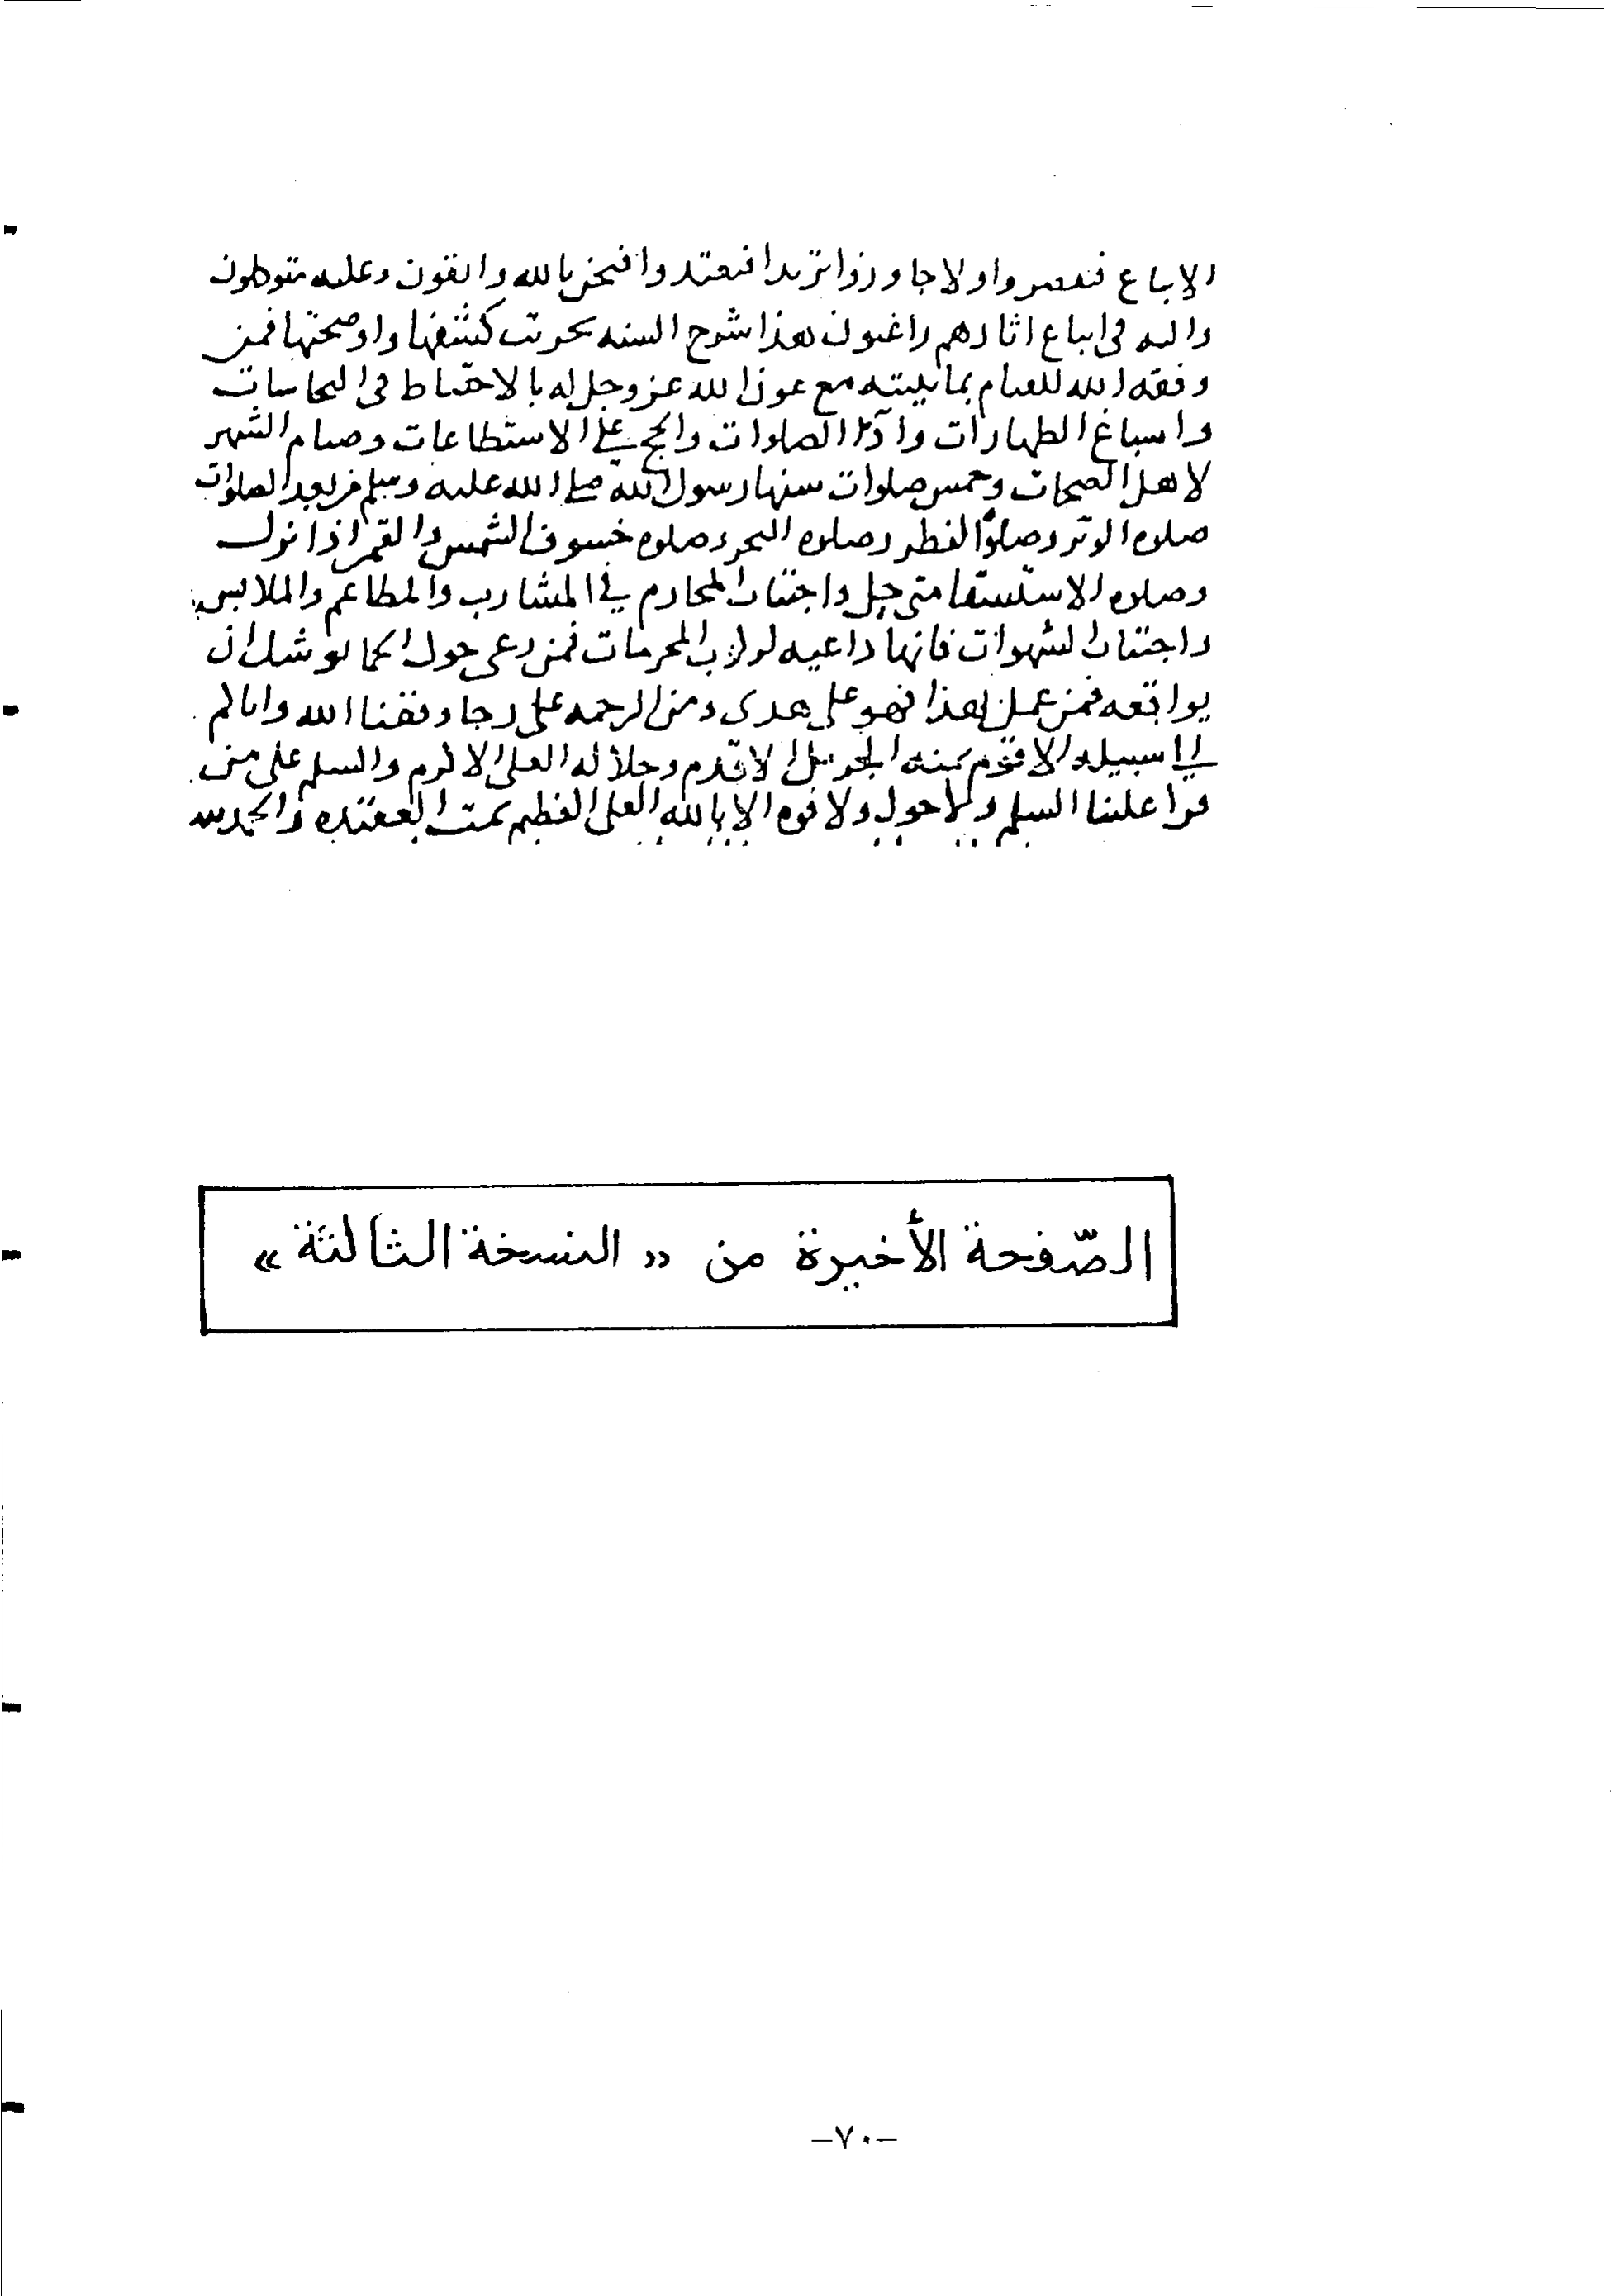 الاتباع فيقصروا ولا جاوزوا تزيدا فيعتدوا فنحن بالله واثقون وعليه متوكلون
واليه في اتباع اثارهم راغبون فهذا شرح السنه تحريت كشفها واوضحتها فمن
وفقه الله للقيام بما بينته مع عون الله عز وجل له بالاحتياط في النجاسات
واسباغ الطهارات وادا الصلوات والحج على الاستطاعات وصيام الشهر
لاهل الصحات وخمس صلوات سنها رسول الله صلى الله عليه وسلم من بعد الصلوات
صلوه الوتر وصلوه الفطر وصلوه النحر وصلوه خسوف الشمس والقمر اذا نزل
وصلوه الاستسقا متى واجتناب المحارم في المشارب والمطاعم والملابس
واجتناب الشهوات فانها داعيه لركوب المحرمات فمن رعى حول الحما يوشك ان
يواقعه فمن عمل بهذا فهو على هدى ومن الرحمه على رجا وفقنا الله واياكم
الى سبيله الاقوم بمنه الجزيل الاقدم وجلاله العلى الاكرم والسلم على من
قرا علينا السلم ولا حول ولا قوه الا بالله العلى العظيم تمت العقيده والحمد لله
الصّفحة الأخيرة من « النسخة الثالثة »
-٧٠-